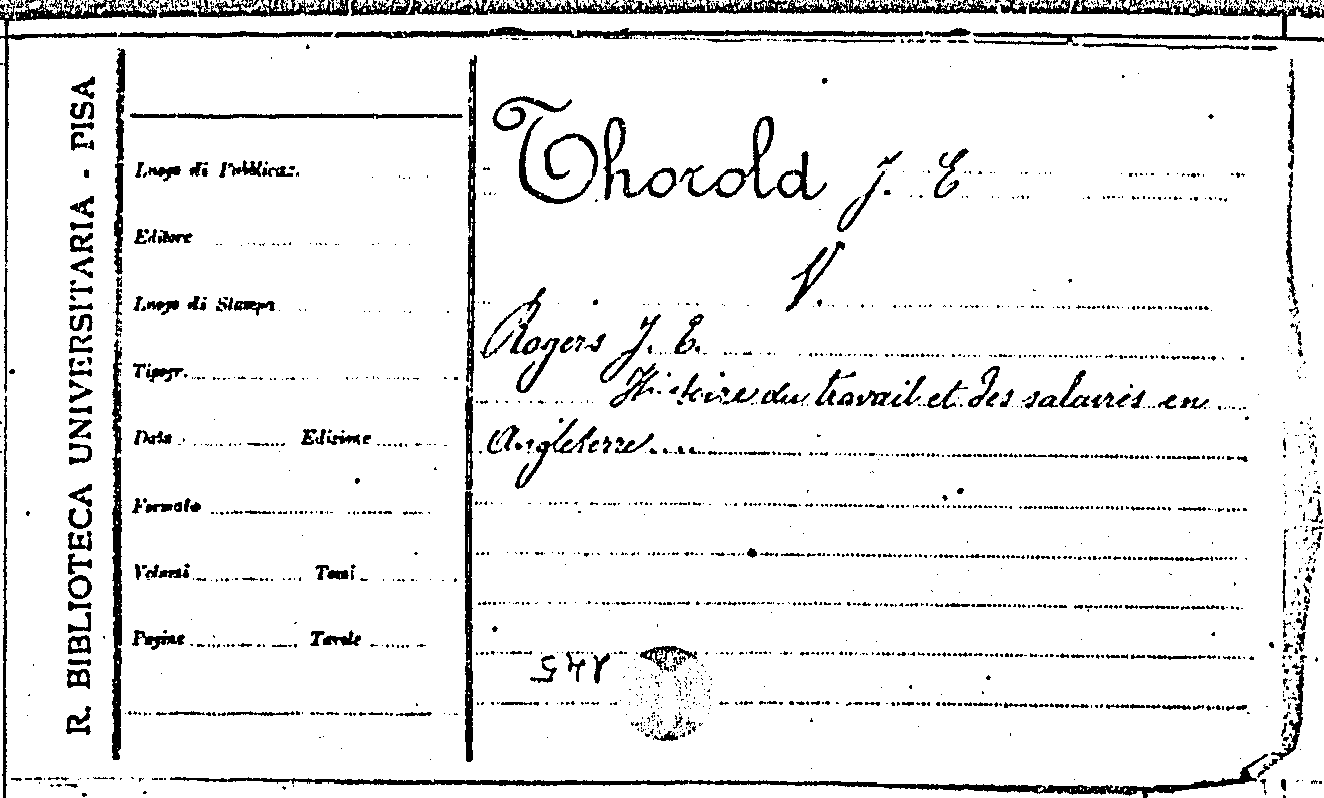 R. BIBLIOTECA UNIVERSITARIA - PISA
Luogo di Pubblicaz.
Editore
Luogo di Stampa
Tipogr.
Data Edizione
Formato
Volumi Tomi
Pagine Tavole
Thorold J. E
V.
Rogers J. E.
Histoire du travail et des salaires en
Angleterre....
145